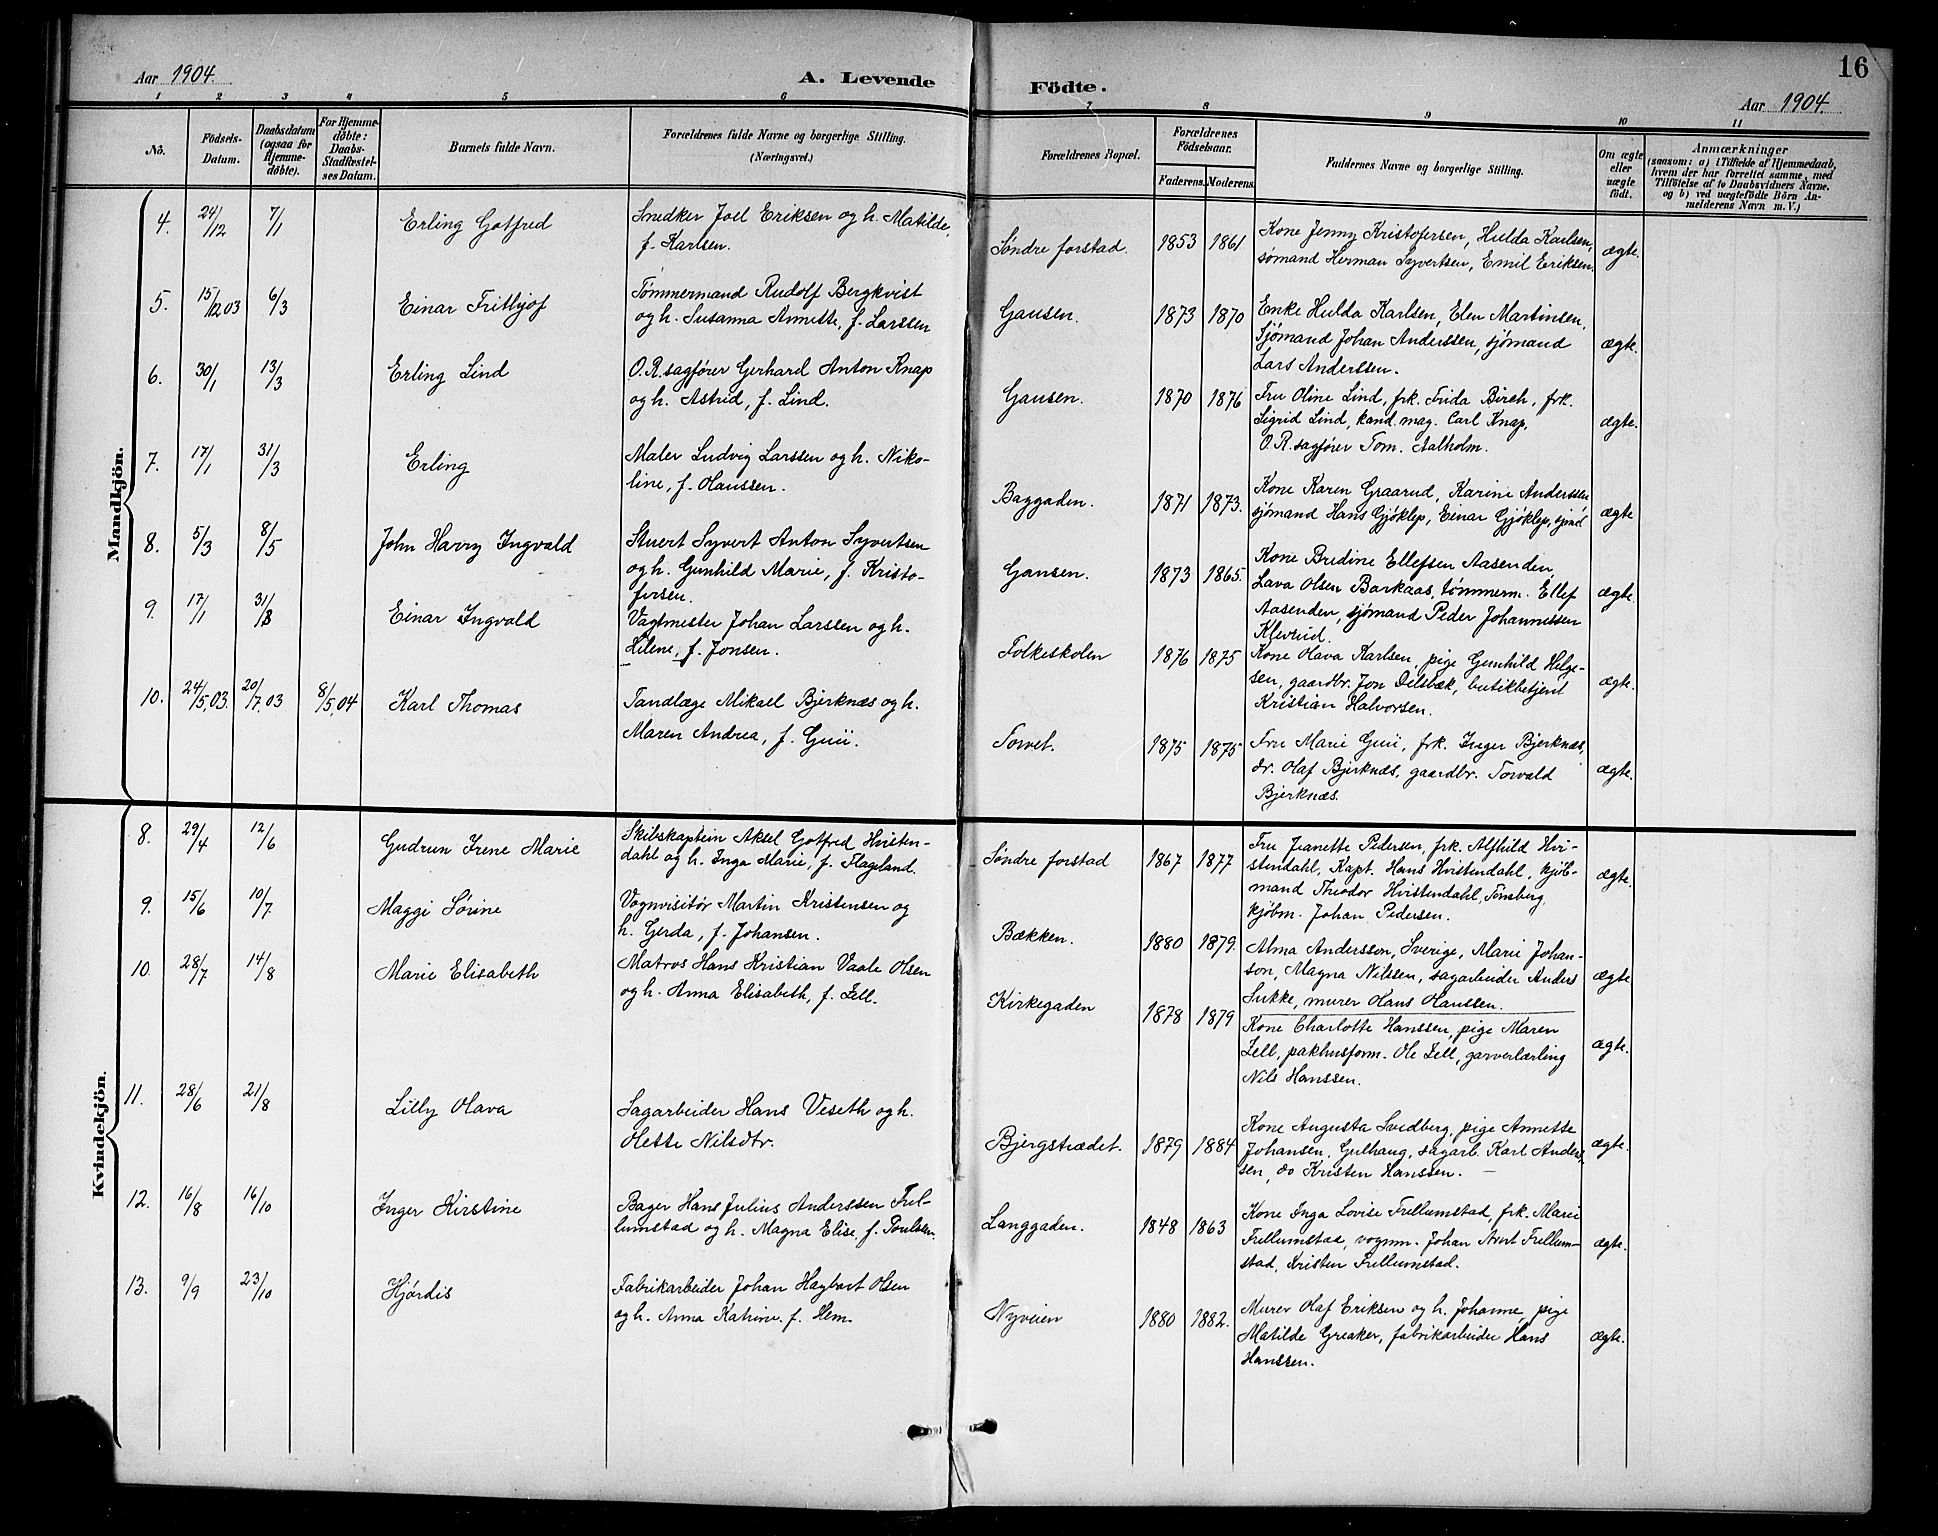 Aar 1904.
A. Levende
Födte.
16
Aar 1904.
1 2 3 4 5 6 7 8 9 10 11
No.
Födsels-Datum.
Daabsdatum (ogsaa for Hjemmedøbte).
For Hjemmedøbte: Daabs-Stadfæstelses Datum.
Barnets fulde Navn.
Forældrenes fulde Navne og borgerlige Stilling.
(Næringsvei.)
Forældrenes Bopæl.
Forældrenes Födselsaar.
Faderens. Moderens.
Faddernes Navne og borgerlige Stilling.
Om ægte eller uægte födt.
Anmærkninger
(saasom: a) i Tilfælde af Hjemmedaab,
hvem der har forrettet samme, med
Tilföielse af to Daabsvidners Navne,
og b) ved uægtefödte Börn An-
melderens Navn m. V.)
Mandkjön.
4. 24/12 7/1 Erling Gotfred
Snedker Joel Eriksen og h. Matilde,
f. Karlsen.
Søndre forstad. 1853 1861
Kone Jenny Kristofersen, Hulda Karlsen,
sømand Herman Syvertsen, Emil Eriksen.
ægte.
5. 15/12 03 6/3 Einar Frithjof
Tømmermand Rudolf Bergkvist
og h. Susanna Annette, f. Larssen
Gausen. 1873 1870
Enke Hulda Karlsen, Elen Martinsen,
Sjømand Johan Anderssen, sjømand
Lars Anderssen.
ægte.
6. 30/1 13/3 Erling Lind
O.R.sagfører Gerhard Anton Knap
og h. Astrid, f. Lind.
Gausen. 1870 1876
Fru Oline Lind, frk. Frida Birch, frk.
Sigrid Lind, kand. mag. Carl Knap,
O.R.sagfører Tom. Aalholm.
ægte.
7. 17/1 31/3 Erling
Maler Ludvig Larssen og h. Niko-
line, f. Hanssen.
Baggaden. 1871 1873.
Kone Karen Graarud, Karine Anderssen
sjømand Hans Gjøklep, Einar Gjøklep, sjmd
ægte
8. 5/3 8/5 John Harry Ingvald
Stuert Syvert Anton Syvertsen
og h. Gunhild Marie, f. Kristo-
fersen.
Gausen. 1873 1865.
Kone Bredine Ellefsen Aasenden
Lava Olsen Barkaas, tømmerm. Ellef
Aasenden, sjømand Peder Johannessen
Klevrud.
ægte.
9. 17/1 31/8 Einar Ingvald
Vagtmester Johan Larssen og h.
Helene, f. Jonsen.
Folkeskolen 1876 1875
Kone Olava Karlsen, pige Gunhild Helge-
sen, gaardbr. Jon Delsbæk, butikbetjent
Kristian Halvorsen.
ægte.
10. 24/5.03 20/7.03 8/5.04 Karl Thomas
Tandlæge Mikael Bjerknæs og h.
Maren Andrea, f. Gui.
Torvet. 1875 1875
Fru Marie Gui, frk. Inger Bjerknæs,
dr. Olaf Bjerknæs, gaardbr. Torvald
Bjerknæs.
ægte.
Kvindekjön.
8. 29/4 12/6 Gudrun Irene Marie
Skibskaptein Aksel Gotfred Hvisten-
dahl og h. Inga Marie, f. Flageland.
Søndre forstad 1867 1877
Fru Jeanette Pedersen, frk. Alfhild Hvi-
stendahl, Kapt. Hans Hvistendahl, kjøb-
mand Theodor Hvistendahl, Tønsberg,
kjøbm. Johan Pedersen.
ægte.
9. 15/6 10/7. Maggi Sørine
Vognvisitør Martin Kristensen og
h. Gerda, f. Johansen.
Bækken. 1880 1879.
Alma Andersson, Sverige, Marie Johan-
son, Magna Nilssen, sagarbeider Anders
Sukke, murer Hans Hanssen.
ægte
10. 28/7 14/8 Marie Elisabeth
Matros Hans Kristian Vaale Olsen
og h. Anna Elisabeth, f. Zell.
Kirkegaden 1878 1879
Kone Charlotte Hanssen, pige Maren
Zell, pakhusform. Ole Zell, garverlærling
Nils Hanssen.
ægte.
11. 28/6 21/8 Lilly Olava
Sagarbeider Hans Veseth og h.
Olette Nilsdtr.
Bjergstrædet. 1879 1884
Kone Augusta Svedberg, pige Annette
Johansen, Gulhaug, sagarb. Karl Anders-
sen, do Kristen Hanssen. —
ægte.
12. 16/8 16/10 Inger Kirstine
Bager Hans Julius Anderssen Frel-
lumstad og h. Magna Elise, f. Poulsen.
Langgaden. 1848 1863
Kone Inga Lovise Frellumstad, frk. Marie
Frellumstad, vognm. Johan Frellum-
stad, Kristen Frellumstad.
ægte.
13. 9/9 23/10 Hjørdis
Fabrikarbeider Johan Hagbart Olsen
og h. Anna Katrine. f. Hem.
Nyveien 1880 1882.
Murer Olaf Eriksen og h. Johanne, pige
Matilde Greaker, fabrikarbeider Hans
Hanssen.
ægte.